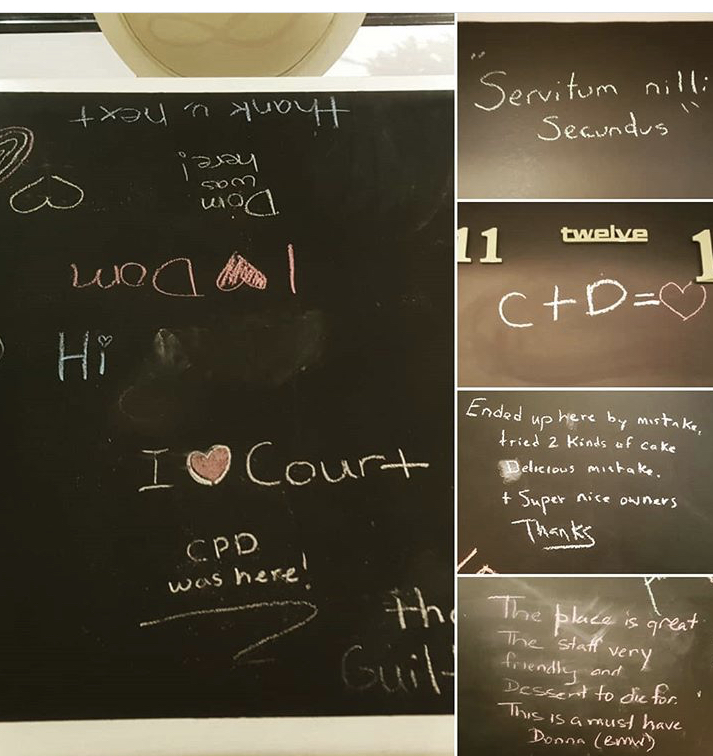 thank u next
Dom
was
here!
I Dom
Hi
I Court
CPD
was here!
the
Guil
"Servitum nilli"
Secundus
11 twelve 1
C+D=
Ended up here by mistake,
tried 2 kinds of cake
Delicious mistake.
+ Super nice owners
Thanks
The place is great
The staff very
friendly and
Dessert to die for.
This is a must have
Donna (BMW)